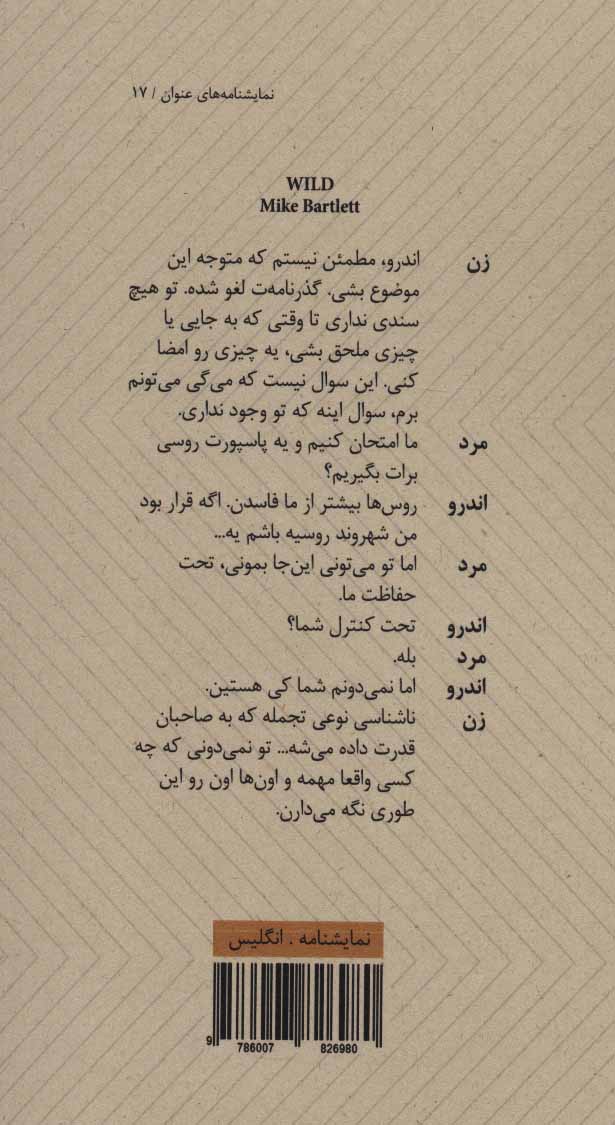 نمایشنامه‌های عنوان / ۱۷
WILD
Mike Bartlett
زن اندرو، مطمئن نیستم که متوجه این
موضوع بشی. گذرنامه‌ت لغو شده. تو هیچ
سندی نداری تا وقتی که به جایی یا
چیزی ملحق بشی، یه چیزی رو امضا
کنی. این سوال نیست که می‌گی می‌تونم
برم، سوال اینه که تو وجود نداری.
مرد ما امتحان کنیم و یه پاسپورت روسی
برات بگیریم؟
اندرو روس‌ها بیشتر از ما فاسدن. اگه قرار بود
من شهروند روسیه باشم یه...
مرد اما تو می‌تونی این‌جا بمونی، تحت
حفاظت ما.
اندرو تحت کنترل شما؟
مرد بله.
اندرو اما نمی‌دونم شما کی هستین.
زن ناشناسی نوعی تجمله که به صاحبان
قدرت داده می‌شه... تو نمی‌دونی که چه
کسی واقعا مهمه و اون‌ها اون رو این
طوری نگه می‌دارن.
نمایشنامه . انگلیس
9 786007 826980